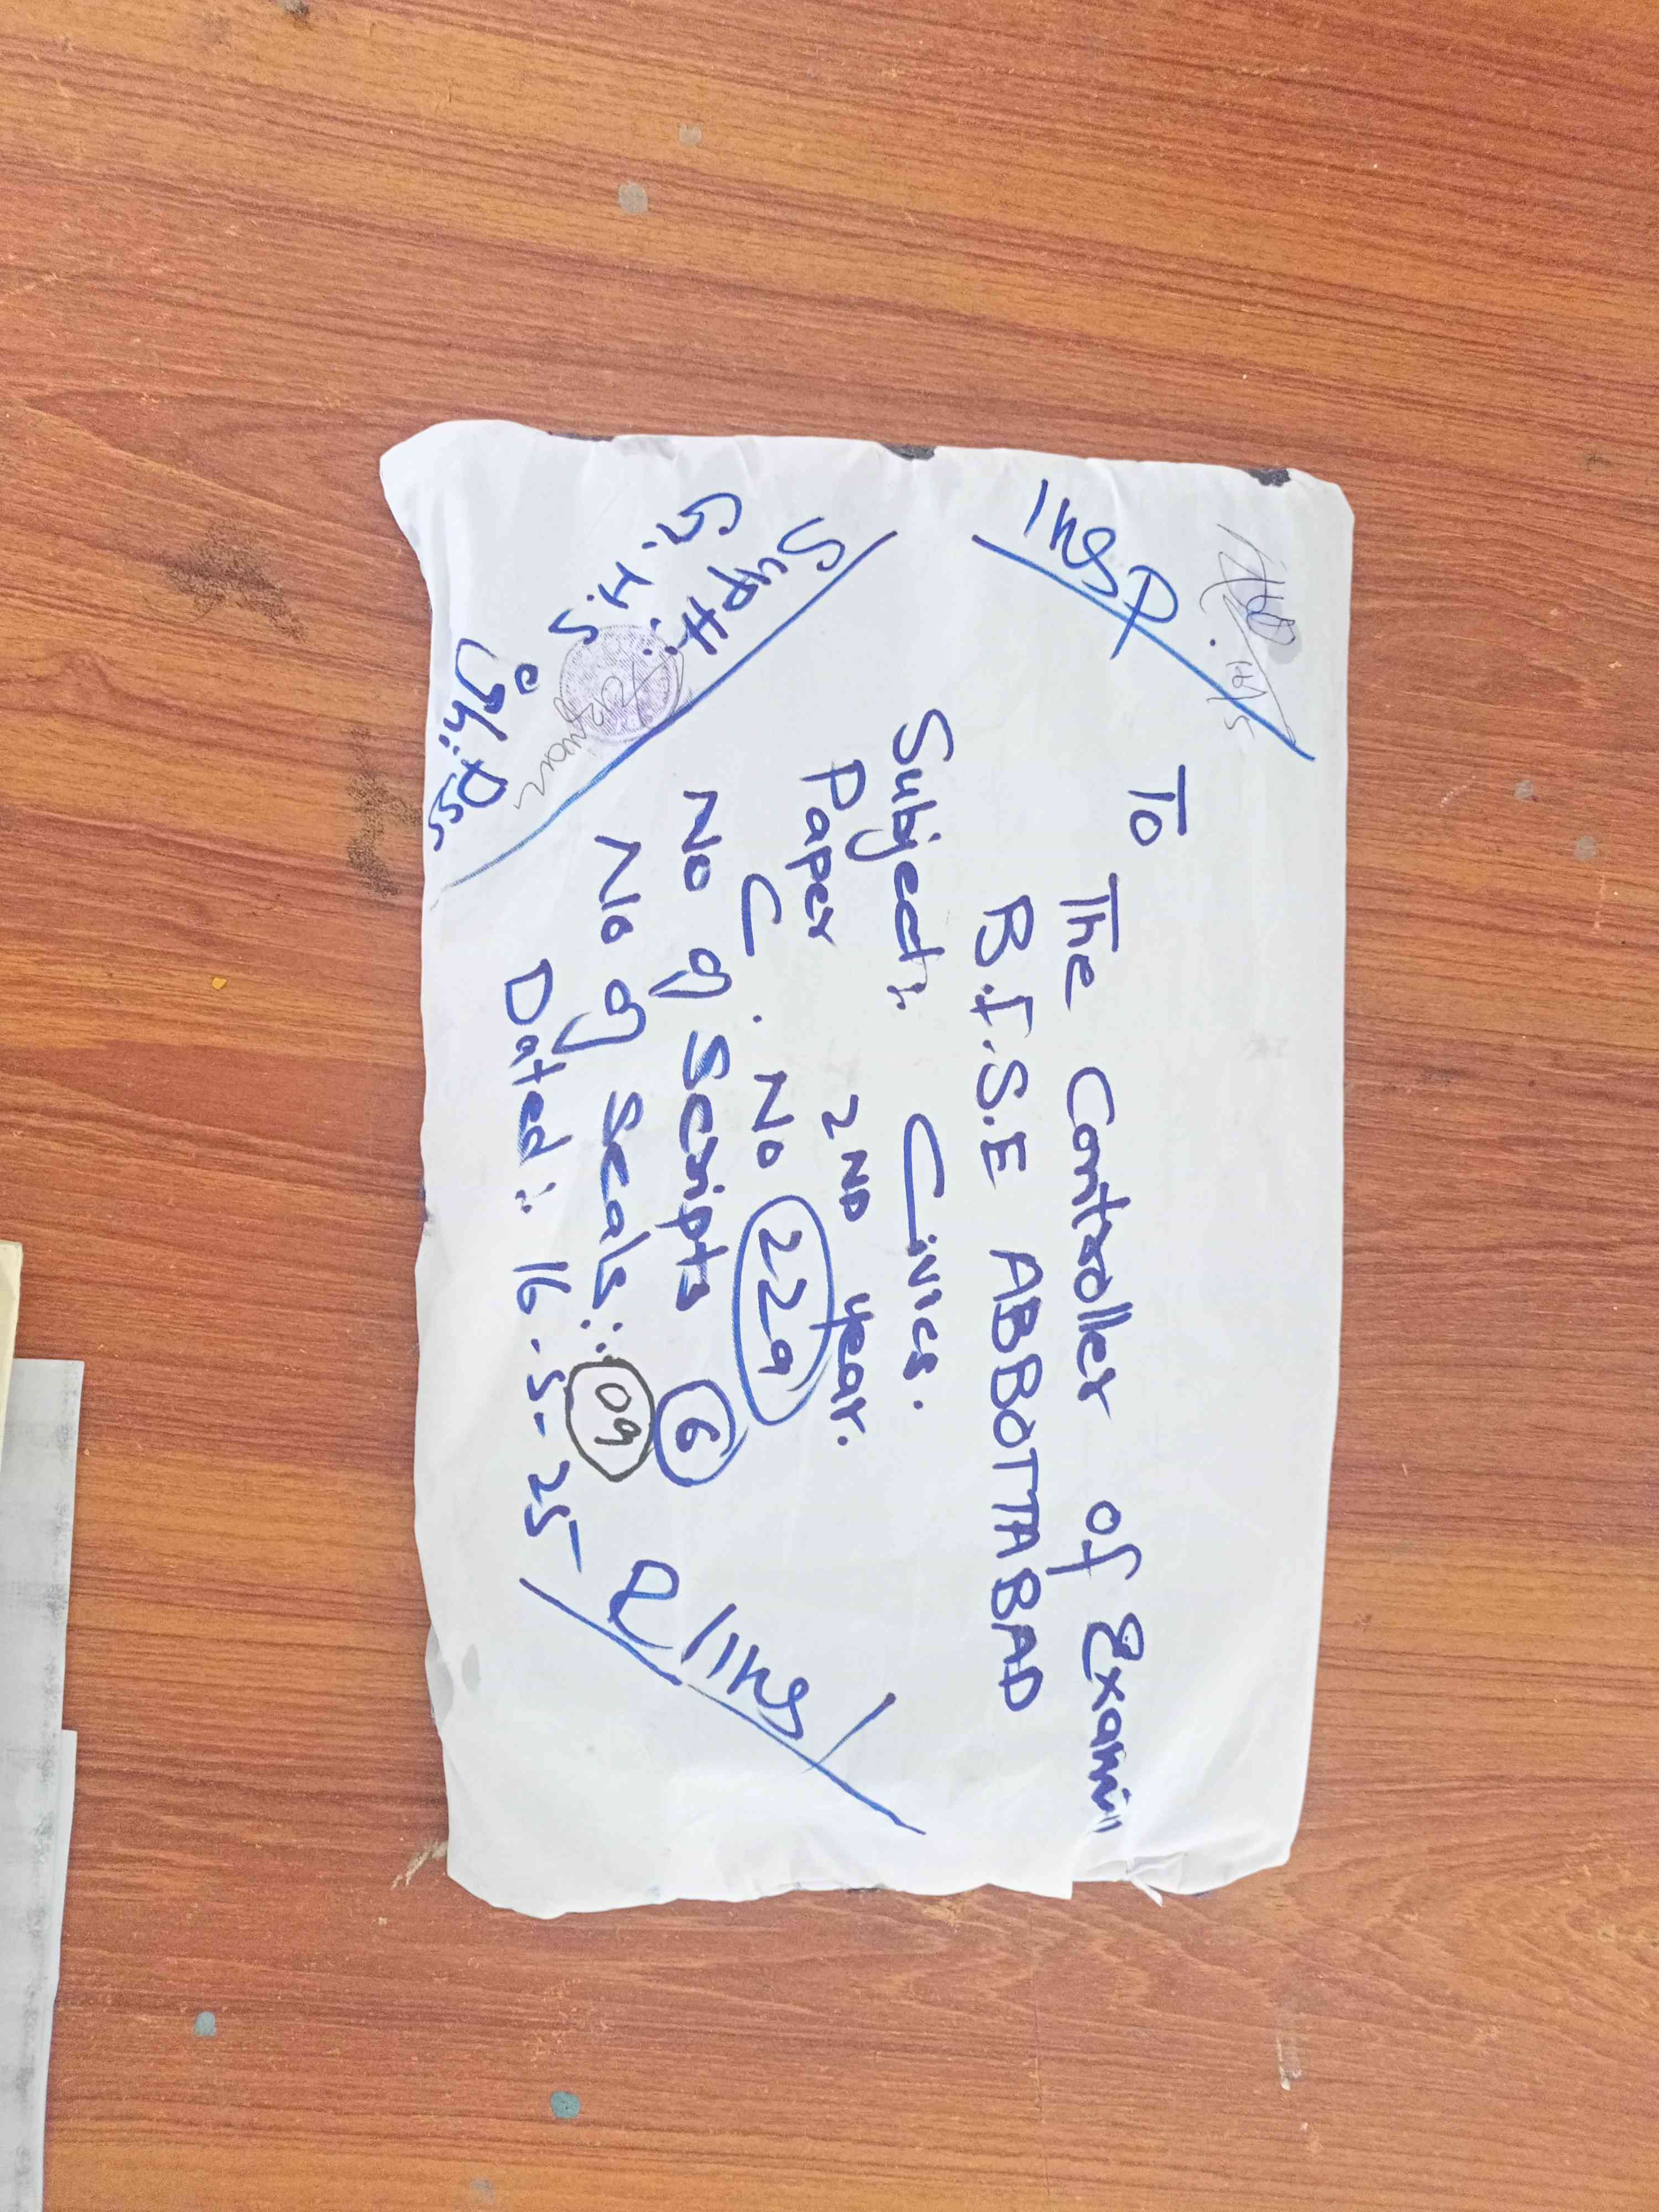 Inst
To
The Controller of Exam"
B.I.S.E ABBOTTABAD
Subject:. Civics.
Paper 2ND Year.
C. No 229
No of Scripts 6
No of Seals:. 09
Dated:. 16-5-25
Suptt:.
G.H.S